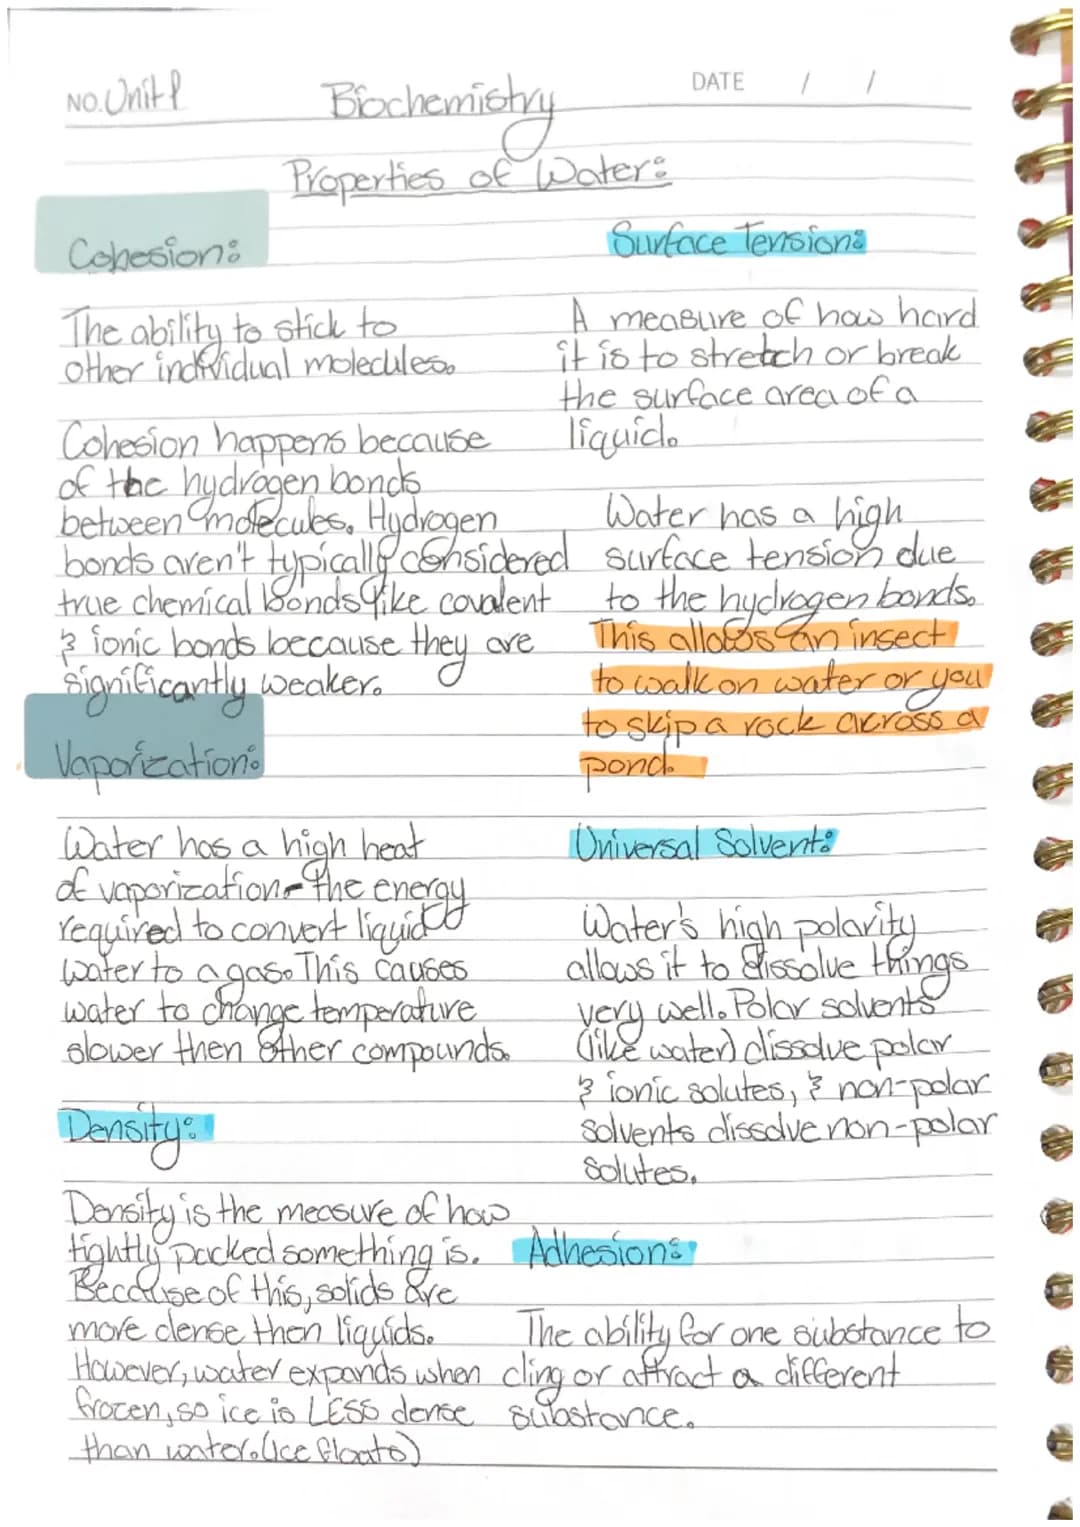 NO. Unit 1
Biochemistry
DATE / /
Properties of Water:
Cohesion:
The ability to stick to
other individual molecules.
Cohesion happens because
of the hydrogen bonds
between molecules. Hydrogen
bonds aren't typically considered
true chemical bonds like covalent
& ionic bonds because they are
significantly weaker.
Vaporization:
Water has a high heat
of vaporization - the energy
required to convert liquid
water to a gas. This causes
water to change temperature
slower then other compounds.
Density:
Density is the measure of how
tightly packed something is.
Because of this, solids are
more dense then liquids.
However, water expands when
frozen, so ice is LESS dense
than water. (Ice floats)
Surface Tension:
A measure of how hard
it is to stretch or break
the surface area of a
liquid.
Water has a high
surface tension due
to the hydrogen bonds.
This allows an insect
to walk on water or you
to skip a rock across a
pond.
Universal Solvent:
Water's high polarity
allows it to dissolve things
very well. Polar solvents
(like water) dissolve polar
& ionic solutes, & non-polar
solvents dissolve non-polar
solutes.
Adhesion:
The ability for one substance to
cling or attract a different
substance.